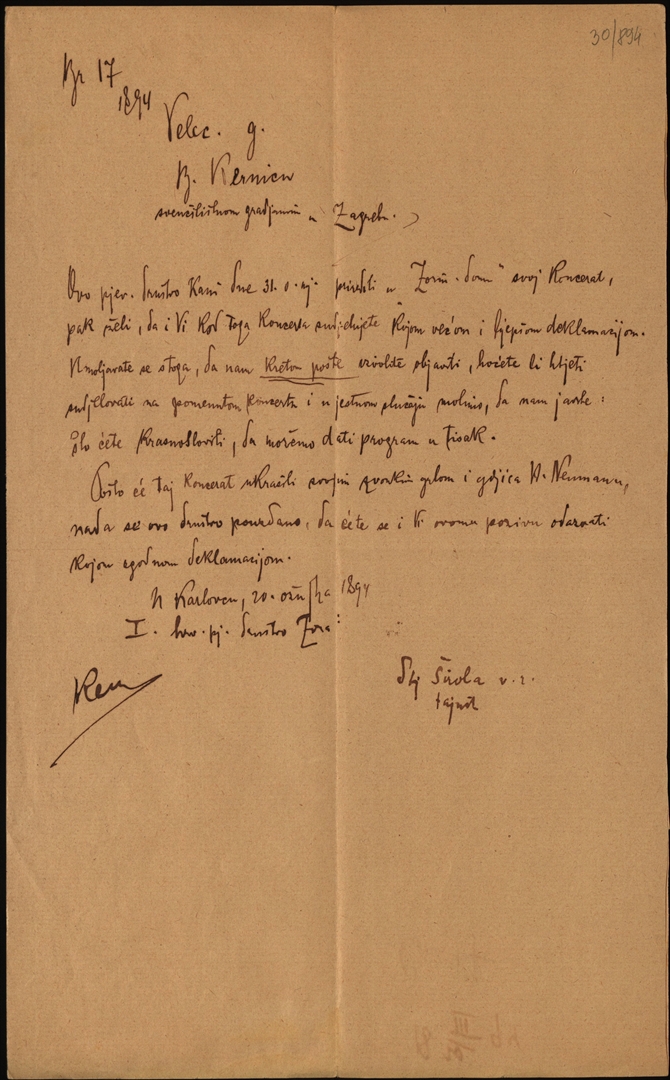 30/894
Br 17
1894
Velec. g.
B. Kernicu
sveučilištnom gradjaninu u Zagrebu.
Ovo pjev. društvo Kani dne 31. o. mj. prirediti u "Zorin-domu" svoj Koncerat,
pak želi, da i Vi Kod toga Koncerta sudjelujete Kojom većom i ljepšom deklamacijom.
Umoljavate se stoga, da nam kretom pošte izvolite objaviti, hoćete li htjeti
sudjelovati na spomenutom Koncertu i u jestnom slučaju molimo, da nam javite:
što ćete Krasnosloviti, da možemo dati program u tisak.
Pošto će taj Koncerat ukrasiti svojim zvonkim grlom i gdjica Neumann,
nada se ovo društvo pouzdano, da ćete se i Vi ovomu pozivu odazvati
Kojom zgodnom deklamacijom.
U Karlovcu, 20. ožujka 1894
I. hrv. pj. društvo Zora:
Stj Širola v. r.
tajnik